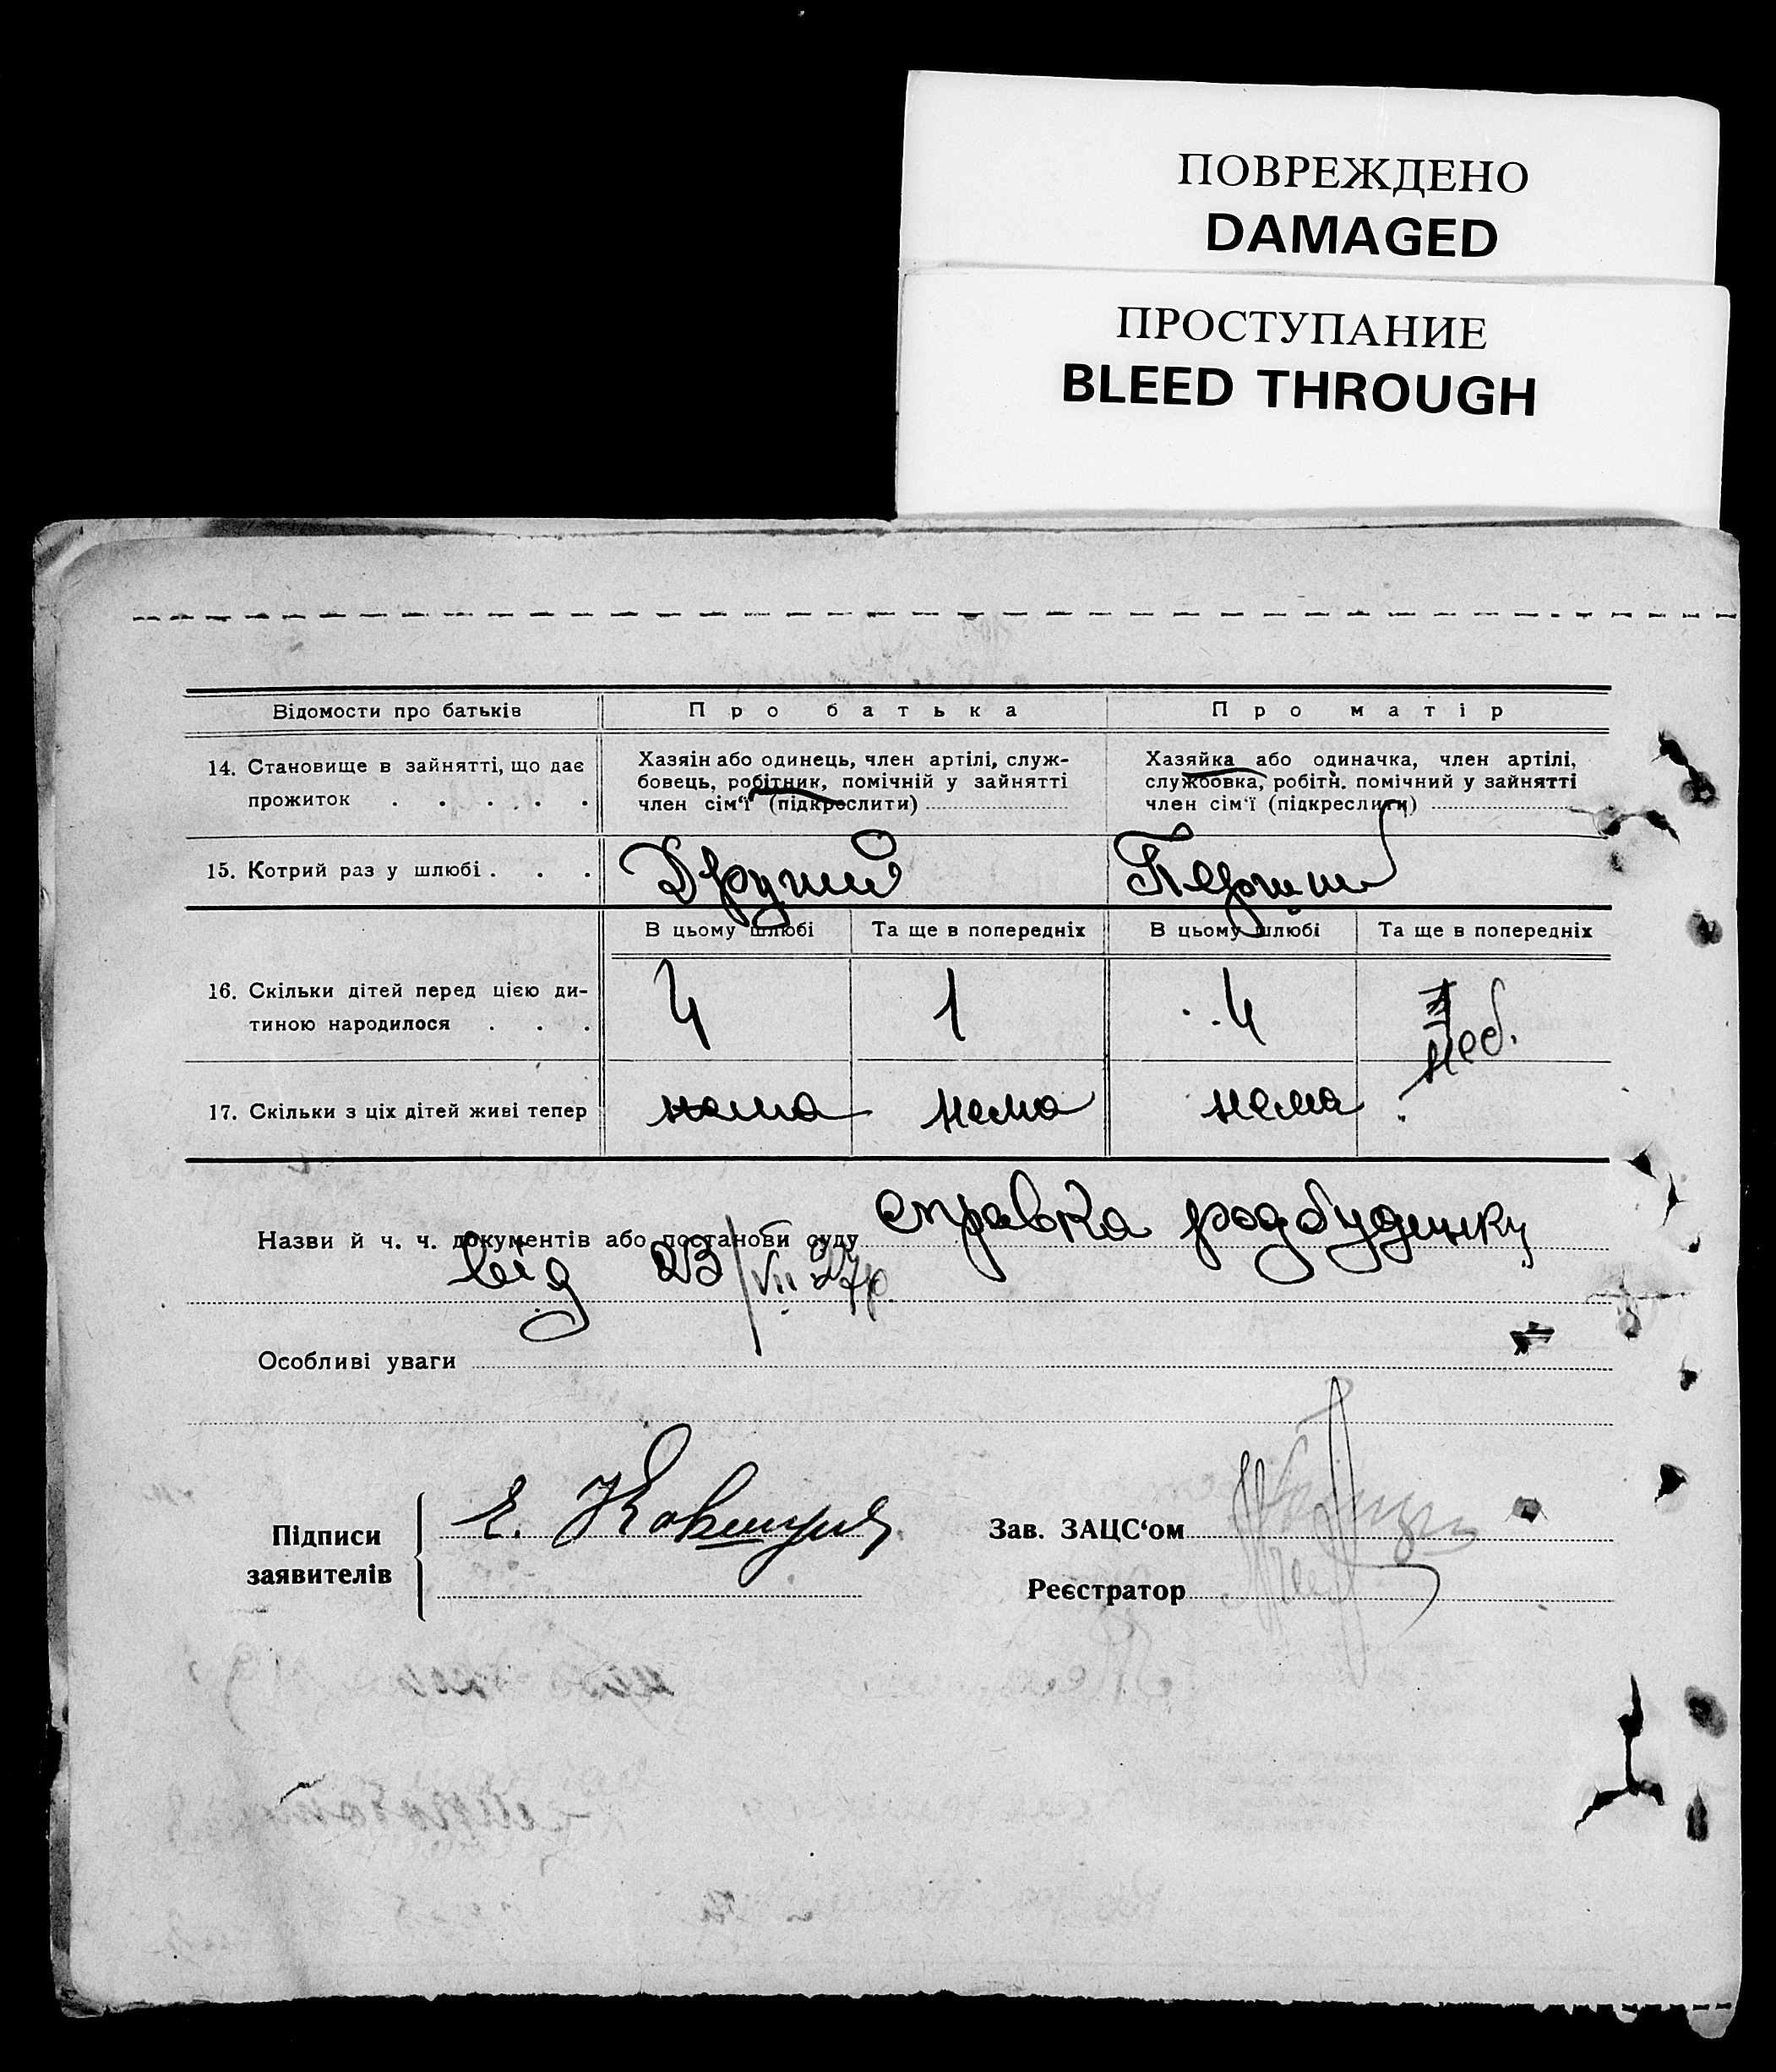 ПОВРЕЖДЕНО
DAMAGED
ПРОСТУПАНИЕ
BLEED THROUGH
Відомости про батьків Про батька Про матір
14. Становище в зайнятті, що дає
прожиток . . . . .
Хазяін або одинець, член артілі, служ-
бовець, робітник, помічній у зайнятті
член сім'ї (підкреслити)
Хазяйка або одиначка, член артілі,
службовка, робітн. помічний у зайнятті
член сім'ї (підкреслити)
15. Котрий раз у шлюбі . . . Другий Перший
В цьому шлюбі Та ще в попередніх В цьому шлюбі Та ще в попередніх
16. Скільки дітей перед цією ди-
тиною народилося . . . 4 1 4
17. Скільки з ціх дітей живі тепер нема нема нема
Назви й ч. ч. документів або постанови суду справка родбудинку
від 23/VII 27р
Особливі уваги
Підписи
заявителів
Е.
Зав. ЗАЦС'ом
Реєстратор